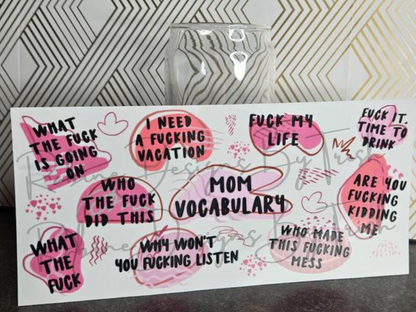 WHAT
THE FUCK
IS GOING
ON
I NEED
A FUCKING
VACATION
FUCK MY
LIFE
FUCK IT.
TIME TO
DRINK
WHO
THE FUCK
DID THIS
MOM
VOCABULARY
ARE YOU
FUCKING
KIDDING
ME
WHAT
THE
FUCK
WHY WON'T
YOU FUCKING LISTEN
WHO MADE
THIS FUCKING
MESS